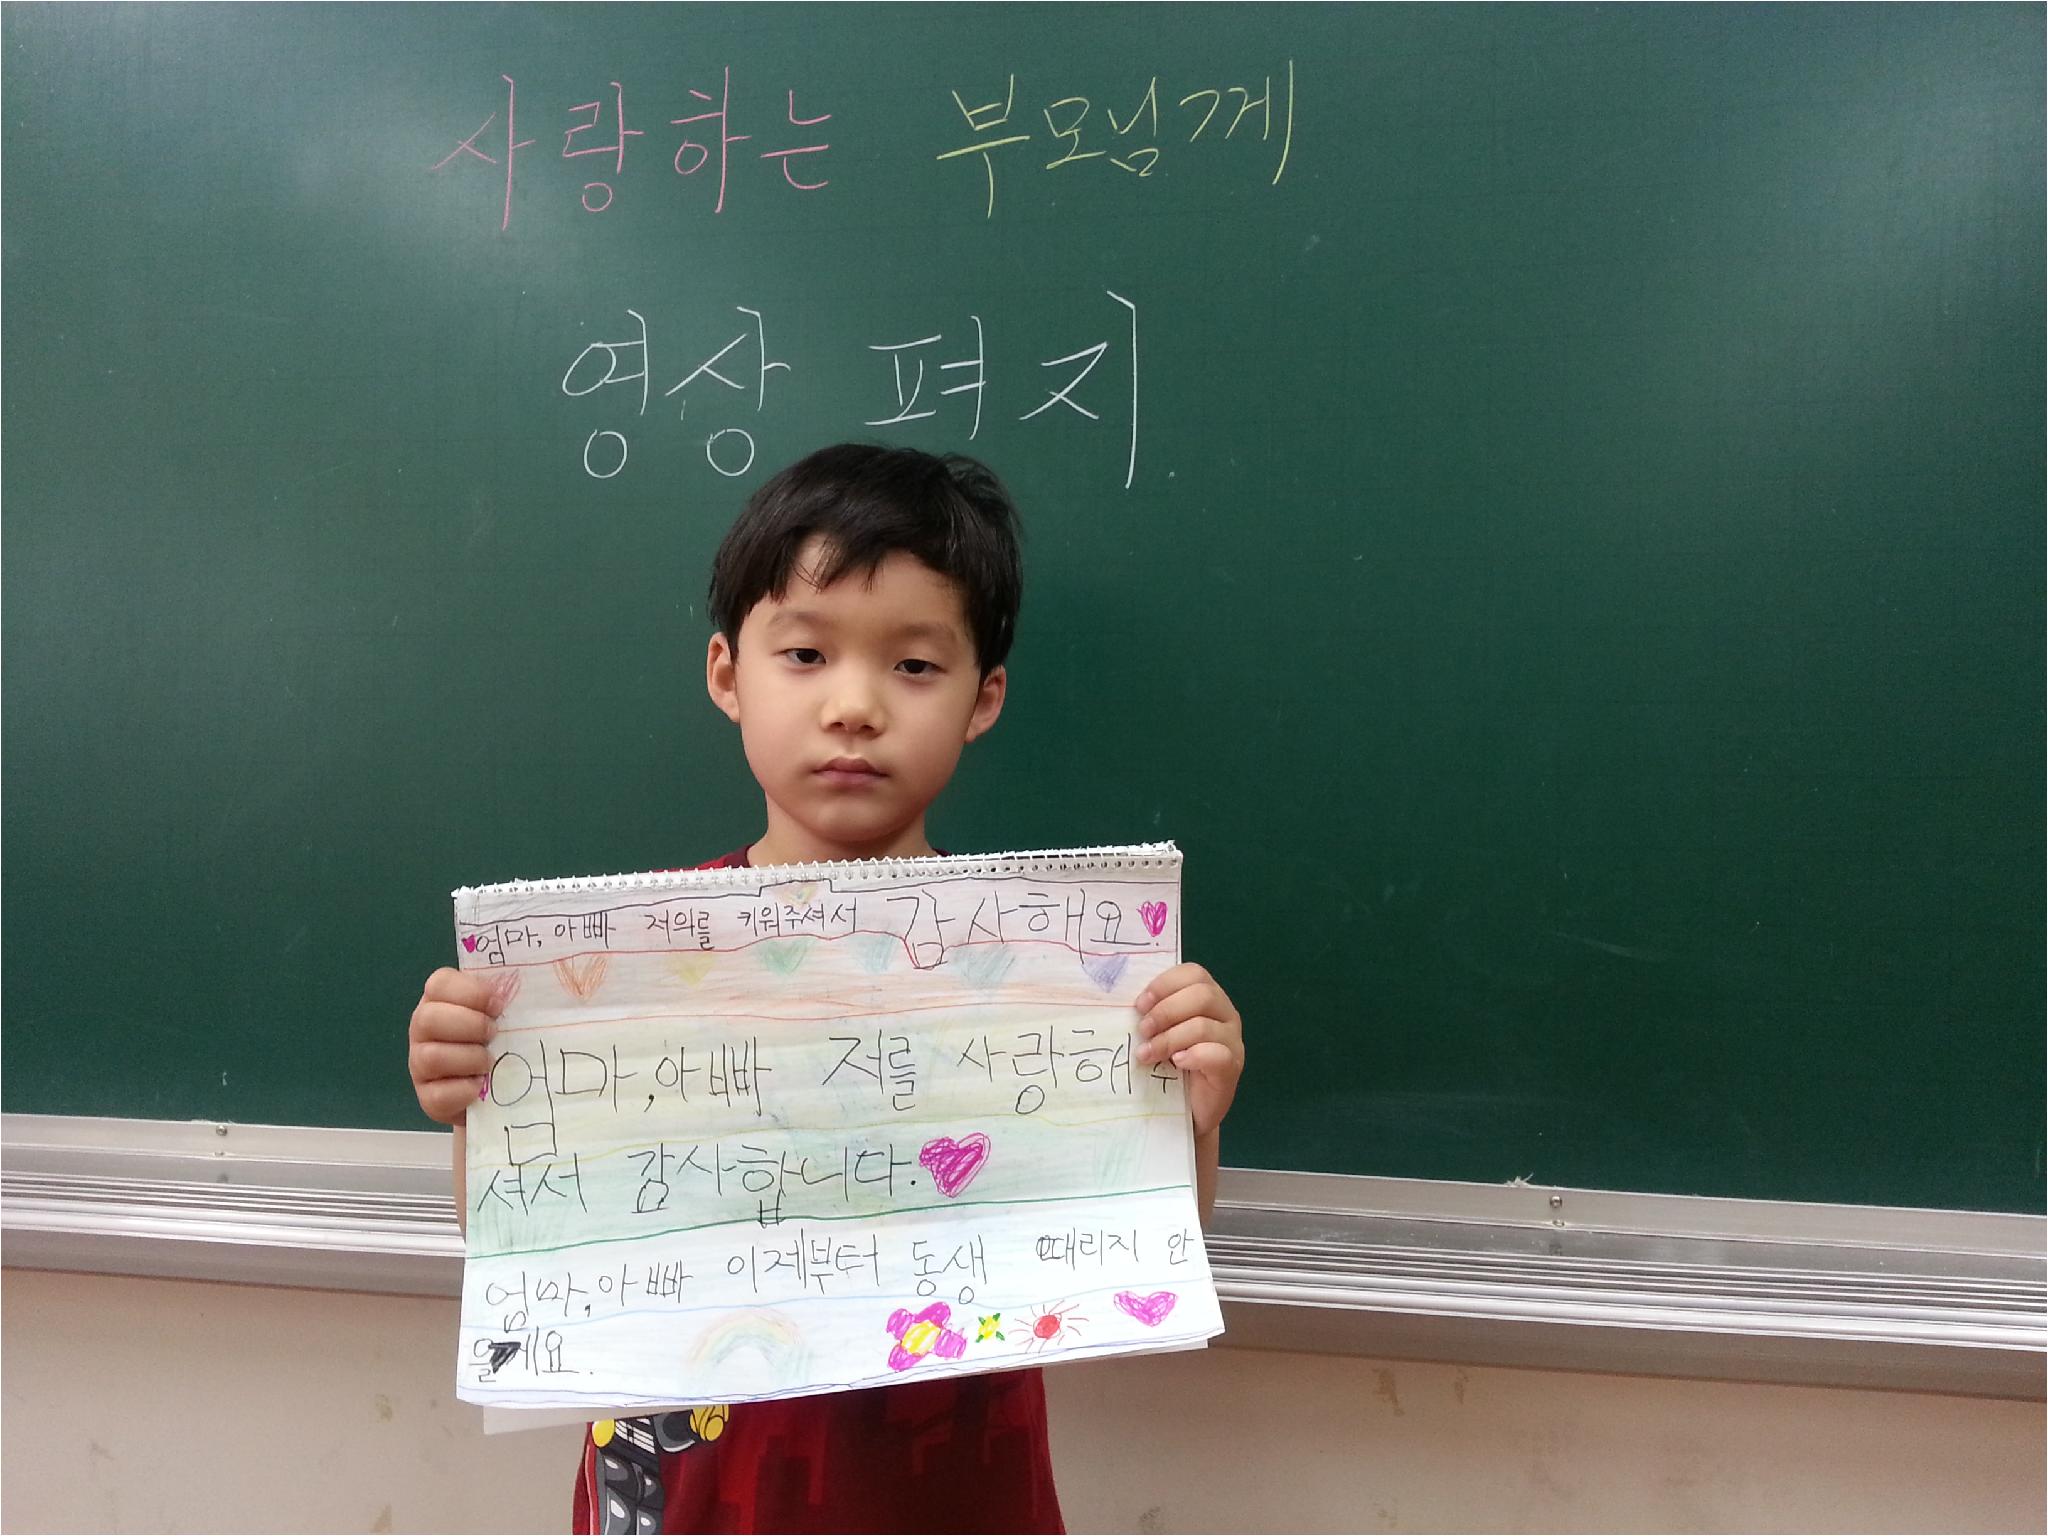 사랑하는 부모님께
영상 편지
엄마, 아빠 저의를 키워주셔서 감사해요
엄마, 아빠 저를 사랑해 주
셔서 감사합니다.
엄마, 아빠 이제부터 동생 때리지 안
을게요.